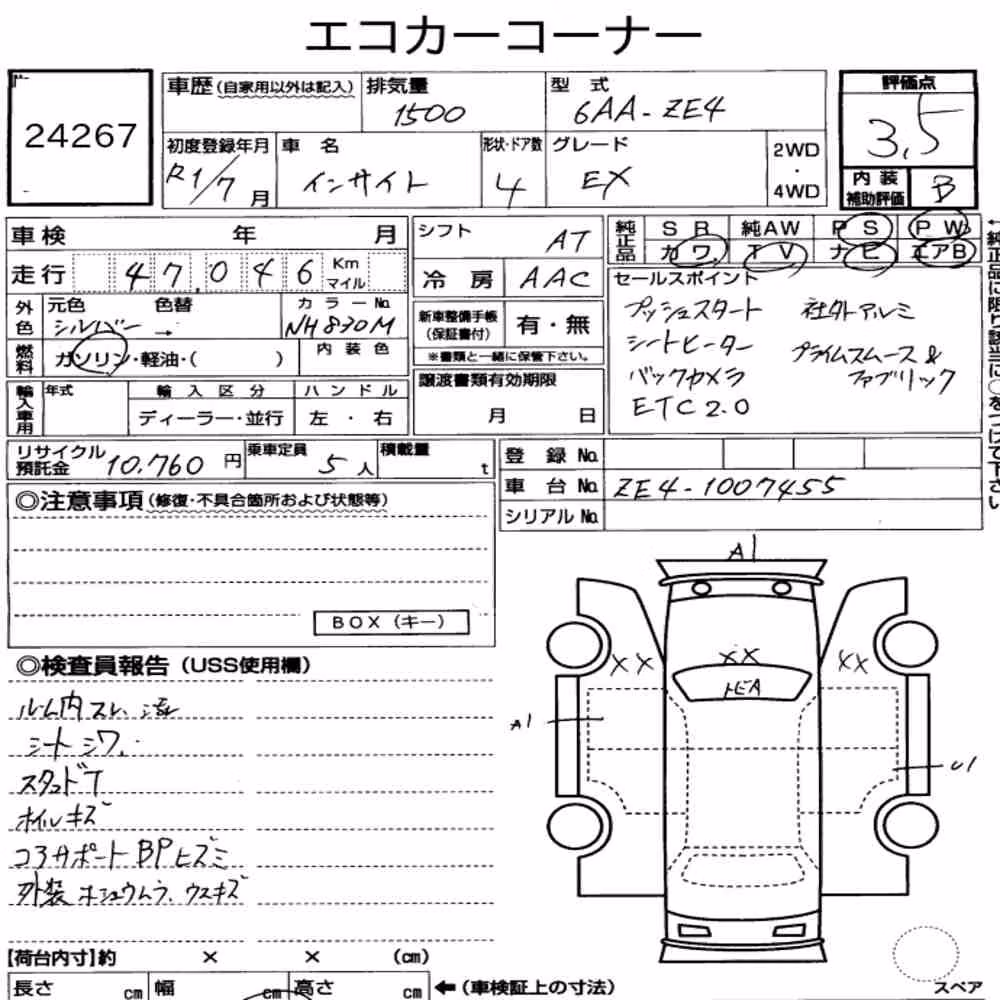 エコカーコーナー
24267
車歴 (自家用以外は記入) 排気量 型式 評価点
1500 6AA-ZE4 3.5
初度登録年月 車名 形状・ドア数 グレード 2WD・4WD 内装補助評価
R1/7月 インサイト 4 EX B
車検 年 月 シフト AT
純正品 SR 純AW PS PW
カワ TV ナビ エアB
走行 47,046 Km マイル 冷房 AAC
セールスポイント
プッシュスタート 社外アルミ
シートヒーター プライムスムース&
バックカメラ ファブリック
ETC2.0
←純正品に限り該当に○をつけて下さい
外色 元色 色替 カラーNo.
シルバー → NH830M
新車整備手帳(保証書付) 有・無
※書類と一緒に保管下さい。
燃料 ガソリン・軽油・( ) 内装色
輸入車用 年式 輸入区分 ハンドル
ディーラー・並行 左・右
譲渡書類有効期限
月 日
リサイクル預託金 10,760円 乗車定員 5人 積載量 t
登録No.
車台No. ZE4-1007455
シリアルNo.
◎注意事項(修復・不具合箇所および状態等)
BOX(キー)
◎検査員報告(USS使用欄)
ルーム内スレ、汚レ
シートシワ、
スタッドT
ホイルキズ
コアサポートBPヒズミ
外装ホシュウムラ、ウスキズ
A1
XX XX XX
トビA
A1
U1
【荷台内寸】約 × × (cm)
長さ cm 幅 cm 高さ cm ←(車検証上の寸法)
スペア